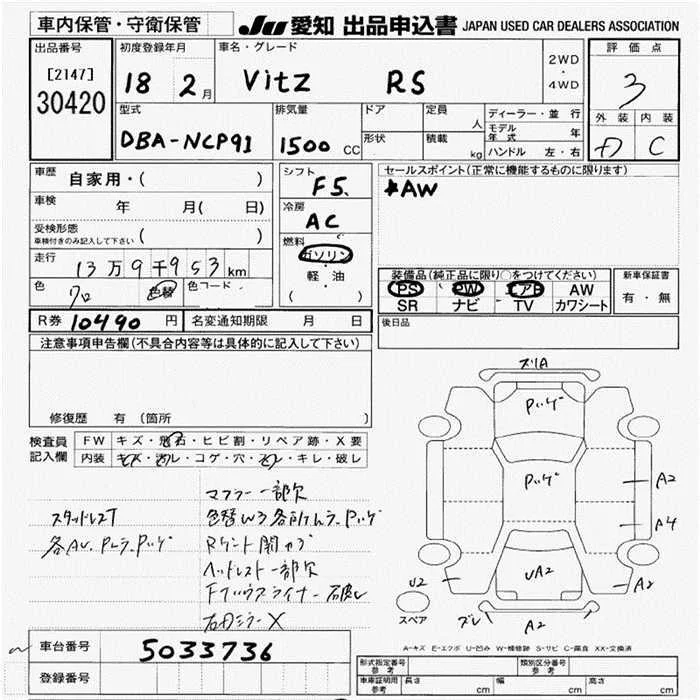 車内保管・守衛保管
JU 愛知 出品申込書 JAPAN USED CAR DEALERS ASSOCIATION
出品番号
[2147]
30420
初度登録年月
18 2月
車名・グレード
Vitz RS
2WD
・
4WD
評価点
3
外装 内装
C
型式
DBA-NCP91
排気量
1500 CC
ドア
形状
定員 人
積載 kg
ディーラー・並行
モデル年式 年
ハンドル 左・右
車歴 自家用・( )
車検 年 月( 日)
受検形態
車検付きのみ記入して下さい ( )
走行
13万9千953km
色
クロ
色替
色コード
シフト
F5
冷房
AC
燃料
ガソリン
・
軽・油
( )
セールスポイント(正常に機能するものに限ります)
*AW
装備品(純正品に限り○をつけてください)
PS PW エアB AW
SR ナビ TV カワシート
新車保証書
有・無
後日品
R券 10490 円
名変通知期限 月 日
注意事項申告欄(不具合内容等は具体的に記入して下さい)
修復歴 有 (箇所
検査員
記入欄
FW キズ・飛石・ヒビ割・リペア跡・X要
内装 キズ・汚レ・コゲ・穴・スレ・キレ・破レ
マフラー一部欠
スタッドレスT
ヘッドレスト一部欠
ズリA
A2
A4
U2
UA2
A2
ズレ
A2
スペア
A-キズ E-エクボ U-凹み W-補修跡 S-サビ C-腐食 XX-交換済
車台番号
5033736
登録番号
形式指定番号
参考
類別区分番号
参考
車庫証明用
参考
長さ cm 幅 cm 高さ cm